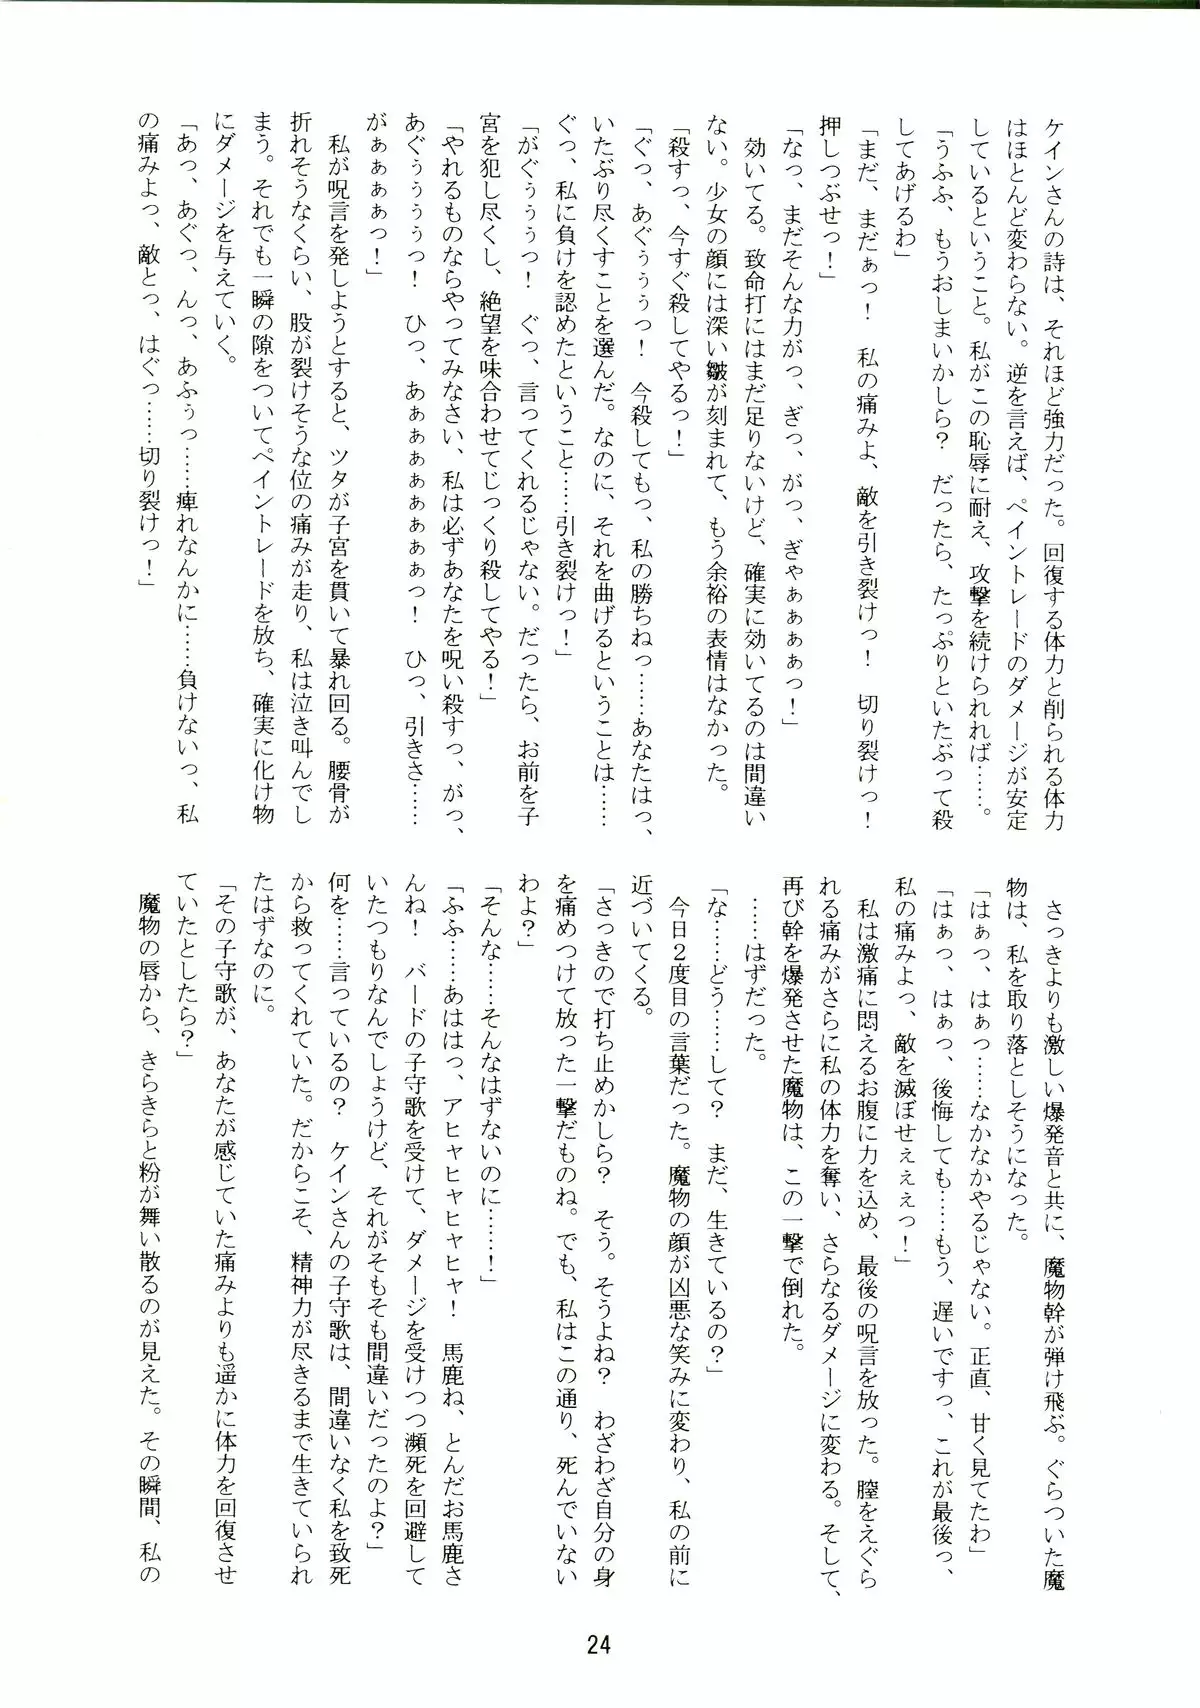 ケインさんの詩は、それほど強力だった。回復する体力と削られる体力
はほとんど変わらない。逆を言えば、ペイントレードのダメージが安定
しているということ。私がこの恥辱に耐え、攻撃を続けられれば……。
「うふふ、もうおしまいかしら?　だったら、たっぷりといたぶって殺
してあげるわ」
「まだ、まだぁっ!　私の痛みよ、敵を引き裂けっ!　切り裂けっ!
押しつぶせっ!」
「なっ、まだそんな力がっ、ぎっ、がっ、ぎゃぁぁぁぁっ!」
効いてる。致命打にはまだ足りないけど、確実に効いてるのは間違い
ない。少女の顔には深い皺が刻まれて、もう余裕の表情はなかった。
「殺すっ、今すぐ殺してやるっ!」
「ぐっ、あぐぅぅぅっ!　今殺してもっ、私の勝ちねっ……あなたはっ、
いたぶり尽くすことを選んだ。なのに、それを曲げるということは……
ぐっ、私に負けを認めたということ……引き裂けっ!」
「がぐぅぅぅっ!　ぐっ、言ってくれるじゃない。だったら、お前を子
宮を犯し尽くし、絶望を味合わせてじっくり殺してやる!」
「やれるものならやってみなさい、私は必ずあなたを呪い殺すっ、がっ、
あぐぅぅぅぅっ!　ひっ、あぁぁぁぁぁぁぁっ!　ひっ、引きさ……
がぁぁぁぁっ!」
私が呪言を発しようとすると、ツタが子宮を貫いて暴れ回る。腰骨が
折れそうなくらい、股が裂けそうな位の痛みが走り、私は泣き叫んでし
まう。それでも一瞬の隙をついてペイントレードを放ち、確実に化け物
にダメージを与えていく。
「あっ、あぐっ、んっ、あふぅっ……痺れなんかに……負けないっ、私
の痛みよっ、敵とっ、はぐっ……切り裂けっ!」
さっきよりも激しい爆発音と共に、魔物幹が弾け飛ぶ。ぐらついた魔
物は、私を取り落としそうになった。
「はぁっ、はぁっ……なかなかやるじゃない。正直、甘く見てたわ」
「はぁっ、はぁっ、後悔しても……もう、遅いですっ、これが最後っ、
私の痛みよっ、敵を滅ぼせぇぇぇっ!」
私は激痛に悶えるお腹に力を込め、最後の呪言を放った。膣をえぐら
れる痛みがさらに私の体力を奪い、さらなるダメージに変わる。そして、
再び幹を爆発させた魔物は、この一撃で倒れた。
……はずだった。
「な……どう……して?　まだ、生きているの?」
今日2度目の言葉だった。魔物の顔が凶悪な笑みに変わり、私の前に
近づいてくる。
「さっきので打ち止めかしら?　そう。そうよね?　わざわざ自分の身
を痛めつけて放った一撃だものね。でも、私はこの通り、死んでいない
わよ?」
「そんな……そんなはずないのに……!」
「ふふ……あははっ、アヒャヒャヒャヒャ!　馬鹿ね、とんだお馬鹿さ
んね!　バードの子守歌を受けて、ダメージを受けつつ瀕死を回避して
いたつもりなんでしょうけど、それがそもそも間違いだったのよ?」
何を……言っているの?　ケインさんの子守歌は、間違いなく私を致死
から救ってくれていた。だからこそ、精神力が尽きるまで生きていられ
たはずなのに。
「その子守歌が、あなたが感じていた痛みよりも遥かに体力を回復させ
ていたとしたら?」
魔物の唇から、きらきらと粉が舞い散るのが見えた。その瞬間、私の
24